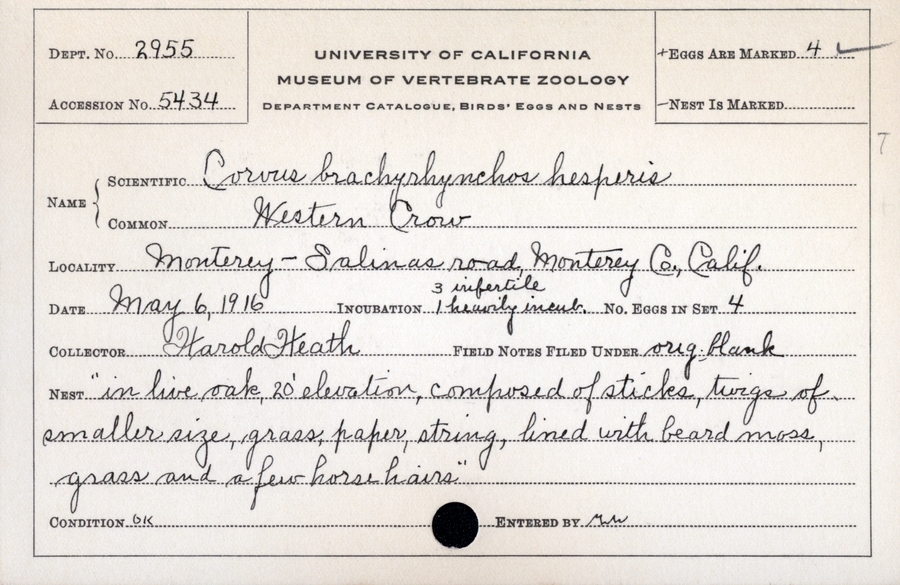 Dept. No. 2955
Accession No. 5434
UNIVERSITY OF CALIFORNIA
MUSEUM OF VERTEBRATE ZOOLOGY
Department Catalogue, Birds' Eggs and Nests
+Eggs Are Marked 4
-Nest Is Marked
7
Name { Scientific Corvus brachyrhynchos hesperis
Common Western Crow
Locality Monterey - Salinas road, Monterey Co., Calif.
3 infertile
Date May 6, 1916 Incubation 1 heavily incub. No. Eggs in Set 4
Collector Harold Heath Field Notes Filed Under orig. blank
Nest "in live oak, 20' elevation, composed of sticks, twigs of
smaller size, grass, paper, string, lined with beard moss,
grass and a few horse hairs"
Condition OK Entered by